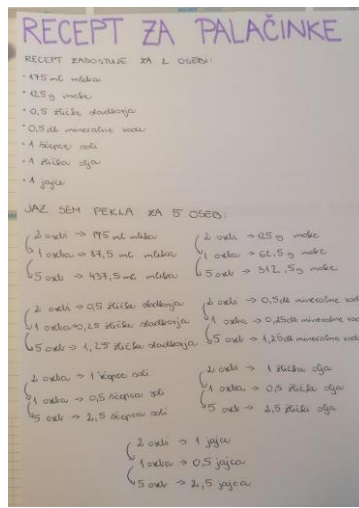 RECEPT ZA PALAČINKE
RECEPT ZADOSTUJE ZA 2 OSEBI:
• 175 ml mleka
• 125 g moke
• 0,5 žličke sladkorja
• 0,5 dl mineralne vode
• 1 ščepec soli
• 1 žlička olja
• 1 jajce
JAZ SEM PEKLA ZA 5 OSEB:
2 osebi → 175 ml mleka
1 oseba → 87,5 ml mleka
5 oseb → 437,5 ml mleka
2 osebi → 125 g moke
1 oseba → 62,5 g moke
5 oseb → 312,5 g moke
2 osebi → 0,5 žličke sladkorja
1 oseba → 0,25 žličke sladkorja
5 oseb → 1,25 žličke sladkorja
2 osebi → 0,5 dl mineralne vode
1 oseba → 0,25 dl mineralne vode
5 oseb → 1,25 dl mineralne vode
2 osebi → 1 ščepec soli
1 oseba → 0,5 ščepca soli
5 oseb → 2,5 ščepca soli
2 osebi → 1 žlička olja
1 oseba → 0,5 žličke olja
5 oseb → 2,5 žličke olja
2 osebi → 1 jajce
1 oseba → 0,5 jajca
5 oseb → 2,5 jajca